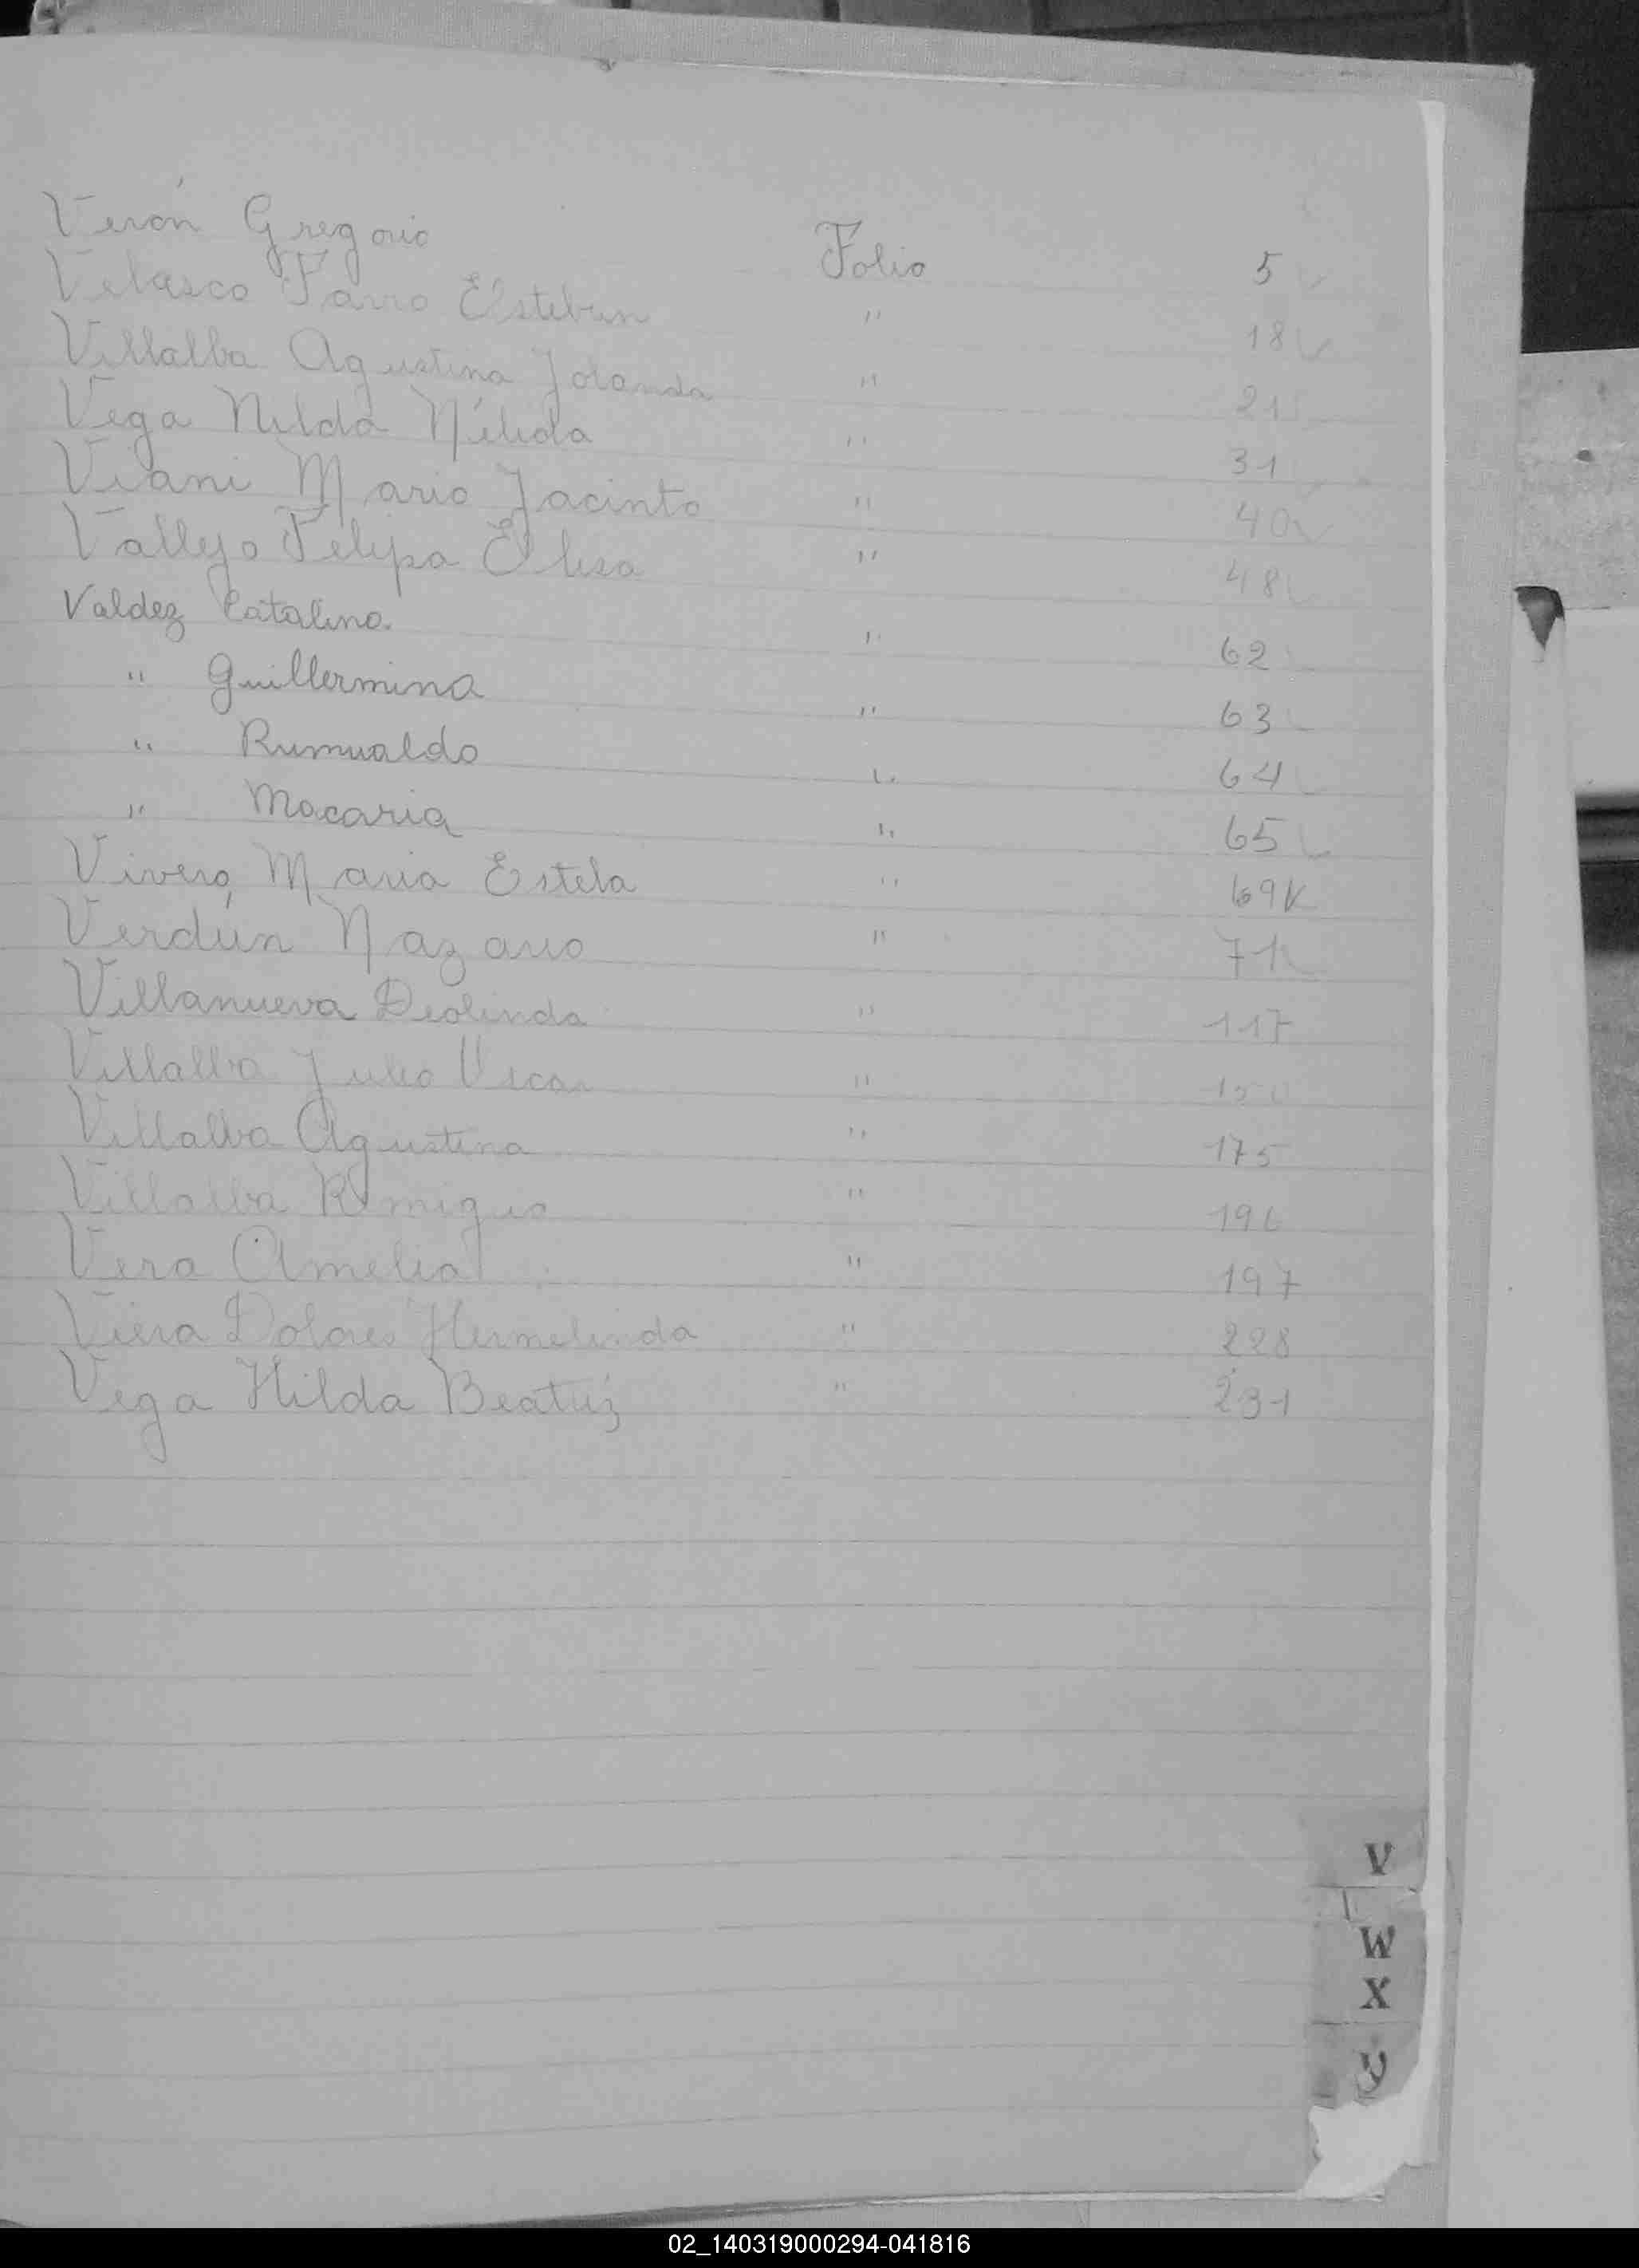 Verón Gregorio Folio 5
Velasco Farro Esteban " 18
Villalba Agustina Jolanda " 21
Vega Nilda Nélida " 31
Viani Mario Jacinto " 40
Vallejo Felipa Elisa " 48
Valdez Catalina " 62
" Guillermina " 63
" Rumualdo " 64
" Macaria " 65
Vivero Maria Estela " 69
Verdún Nazario " 71
Villanueva Deolinda " 117
Villalba Julio "
Villalba Agustina " 175
Villalba Remigio "
Vera Amelia " 197
Viera Dolores Hermelinda " 228
Vega Hilda Beatriz " 231
V
W
X
Y
02_140319000294-041816